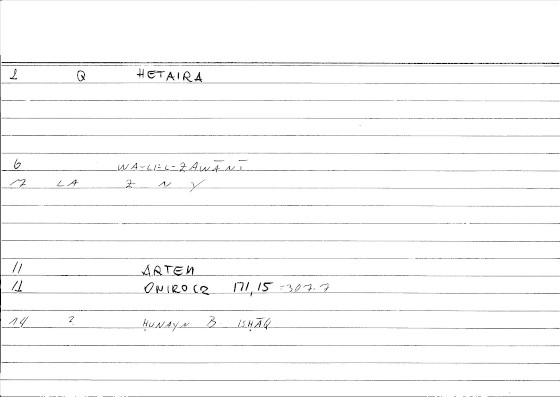 1 Q HETAIRA
6 WA-LEL-ZAWĀNĪ
12 LA Z N Y
11 ARTEM
11 ONIROCR 171,15 = 307.7
14 2 ḤUNAYN B ISḤĀQ